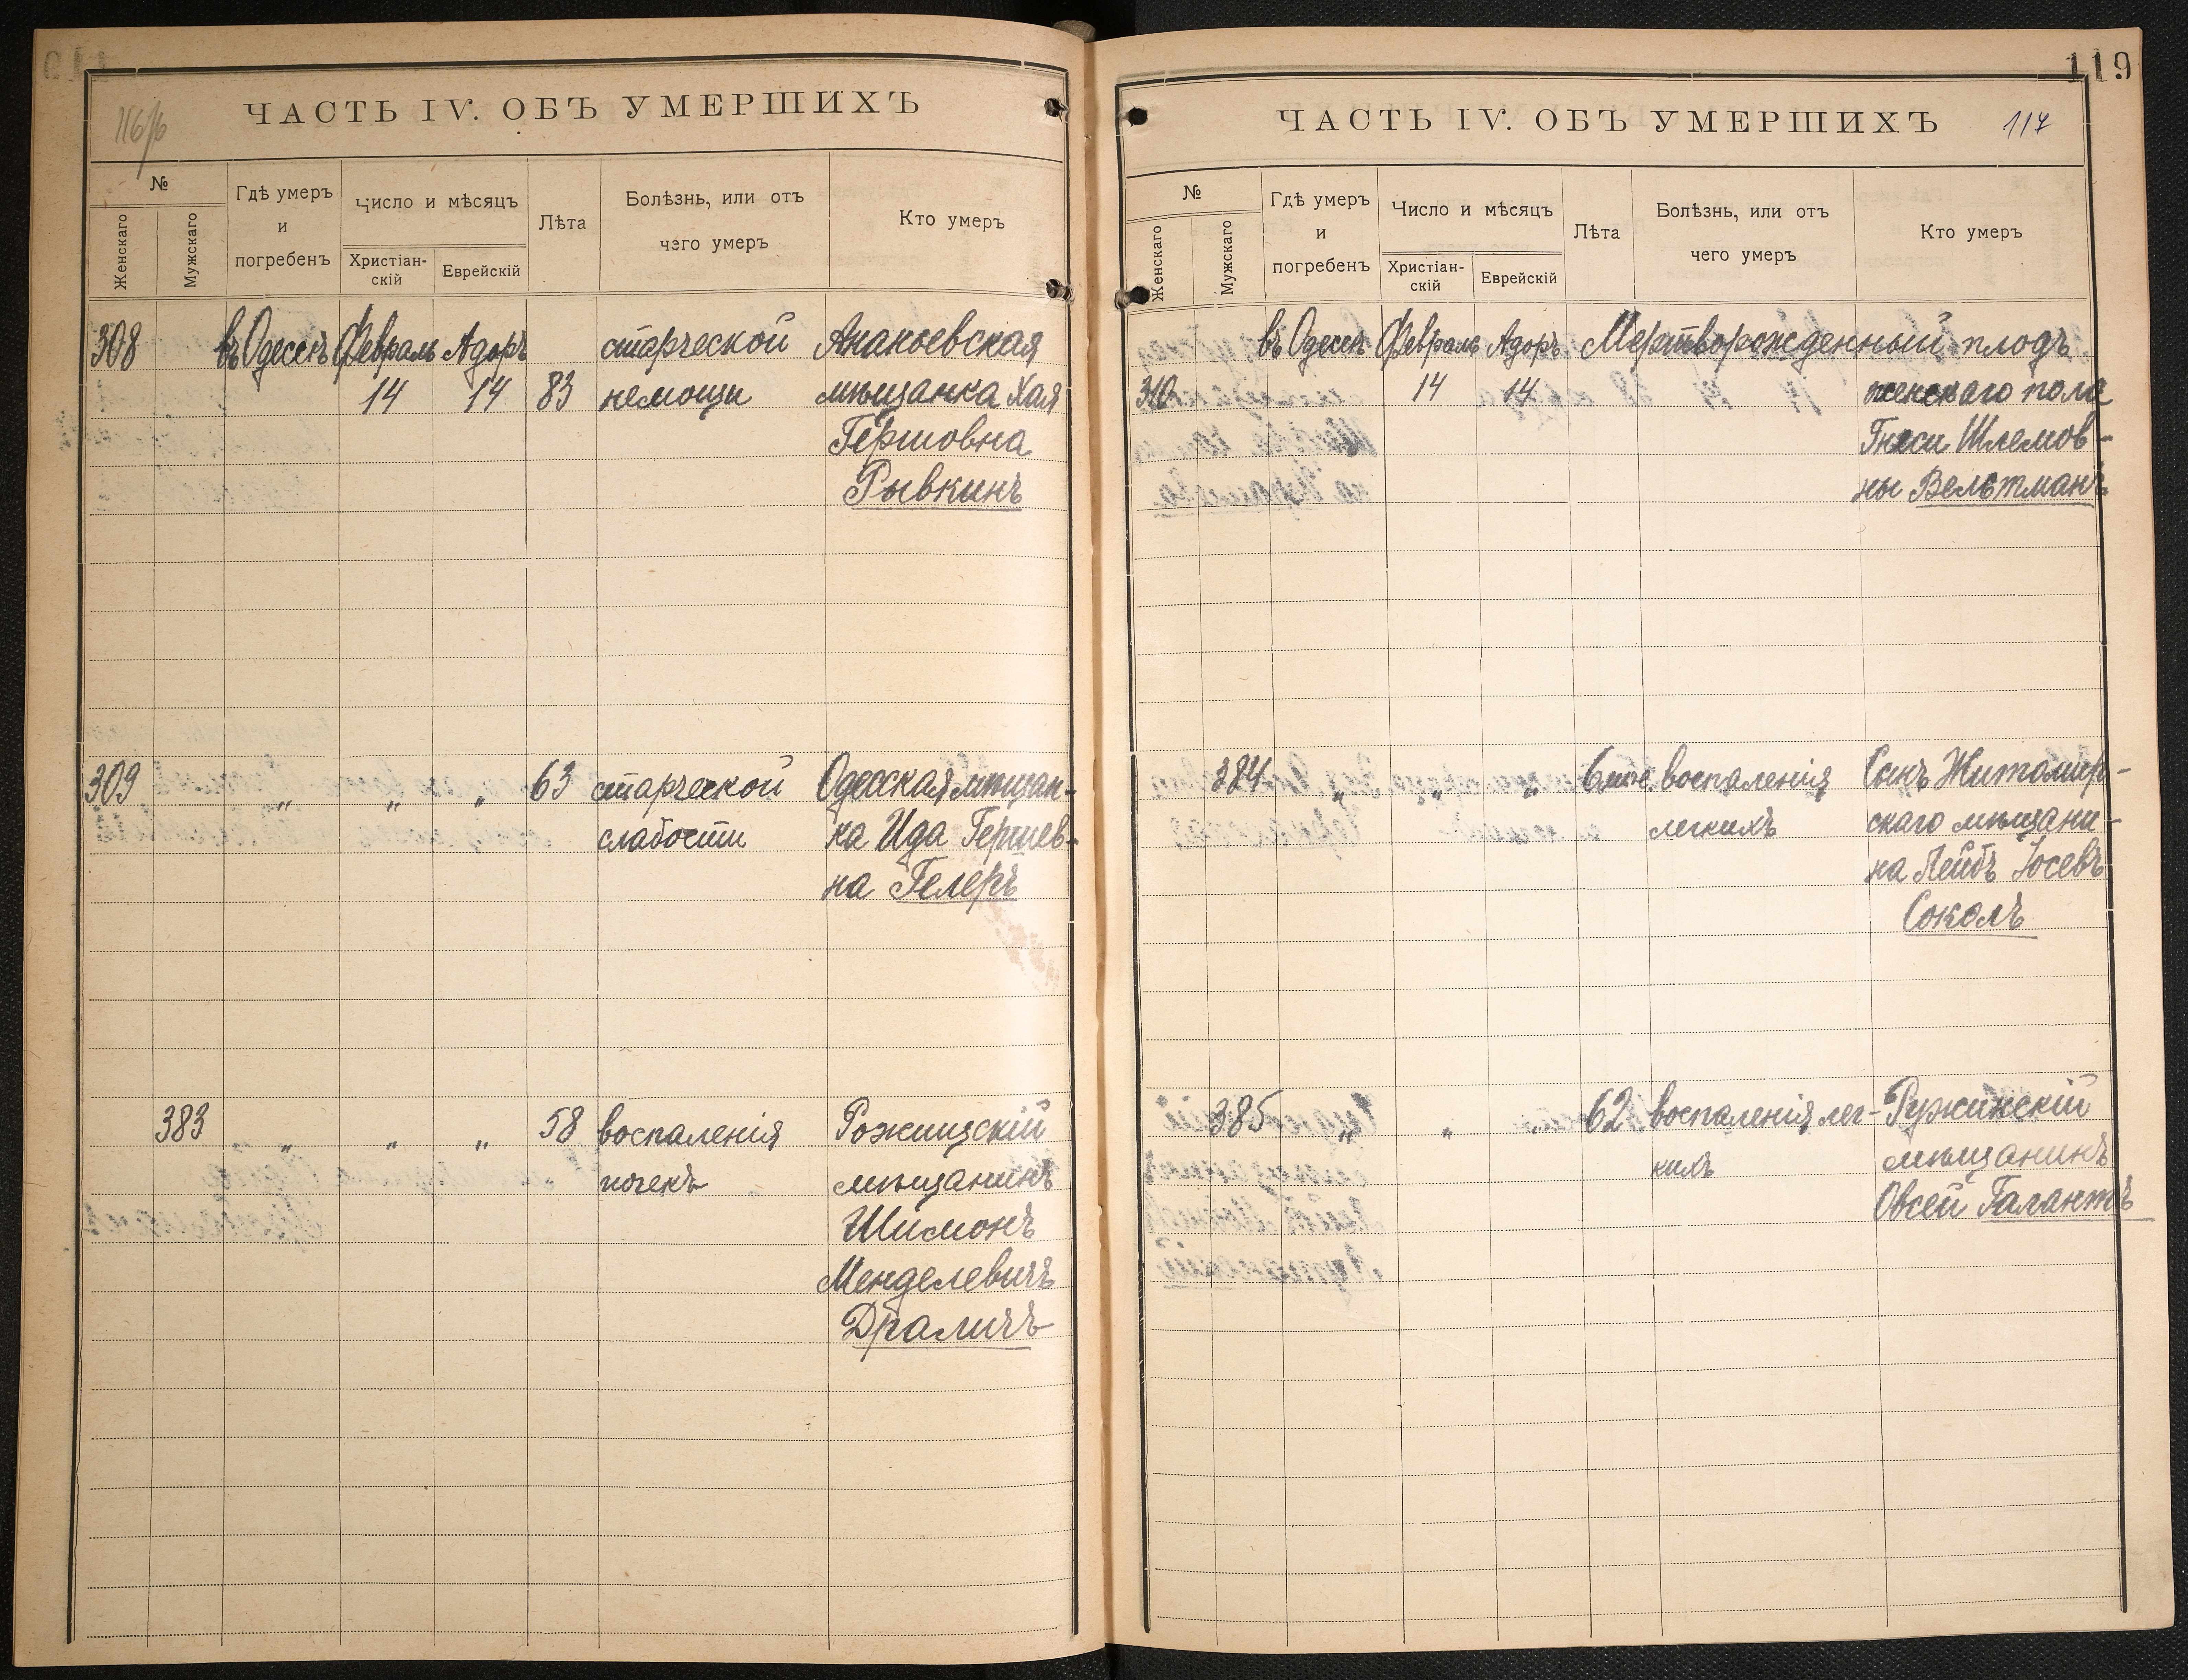 116/б
ЧАСТЬ IV. ОБЪ УМЕРШИХЪ
№
Женскаго
Мужскаго
Гдѣ умеръ
и
погребенъ
Число и мѣсяцъ
Христіан-
скій
Еврейскій
Лѣта
Болѣзнь, или отъ
чего умеръ
Кто умеръ
308 въ Одессѣ Февраль Адоръ старческой Ананьевская
14 14 83 немощи мѣщанка Хая
Гершовна
Рывкинъ
309 „ „ „ 63 старческой Одесская мѣщан-
слабости ка Ида Гершев-
на Гелеръ
383 „ „ „ 58 воспаленія Рожищскій
почекъ мѣщанинъ
Шимонъ
Менделевичъ
Драличъ
119
ЧАСТЬ IV. ОБЪ УМЕРШИХЪ 117
№
Женскаго
Мужскаго
Гдѣ умеръ
и
погребенъ
Число и мѣсяцъ
Христіан-
скій
Еврейскій
Лѣта
Болѣзнь, или отъ
чего умеръ
Кто умеръ
въ Одессѣ Февраль Адоръ Мертворожденный плодъ
310 14 14 женскаго пола
Гнеси Шлемов-
ны Вельтманъ
384 „ „ „ 6 мѣс. воспаленія Сынъ Житомир-
легкихъ скаго мѣщани-
на Лейбъ Іосевъ
Соколъ
385 „ „ „ 62 воспаленія лег- Ружинскій
кихъ мѣщанинъ
Овсей Галантъ